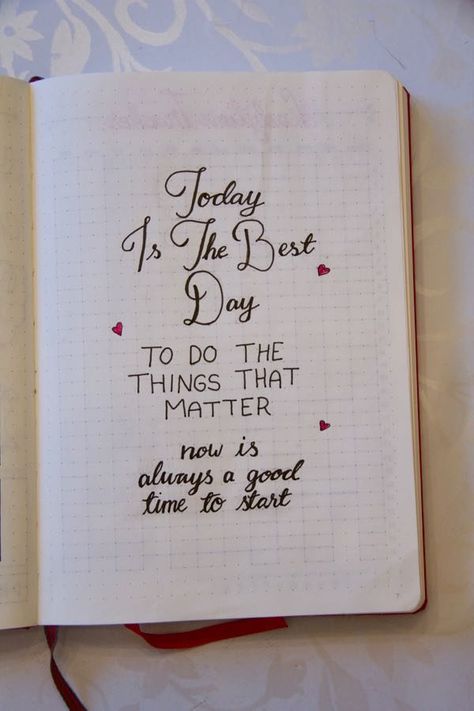 Today
Is The Best
Day
TO DO THE
THINGS THAT
MATTER
now is
always a good
time to start